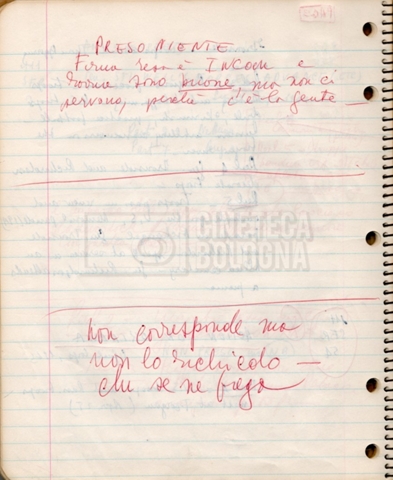 PRESO NIENTE
Firma resa è INCOM e
rovine sono buone ma non ci
servono, perché c'è la gente
CINETECA
BOLOGNA
non corresponde ma
non lo richiedo —
chi se ne frega